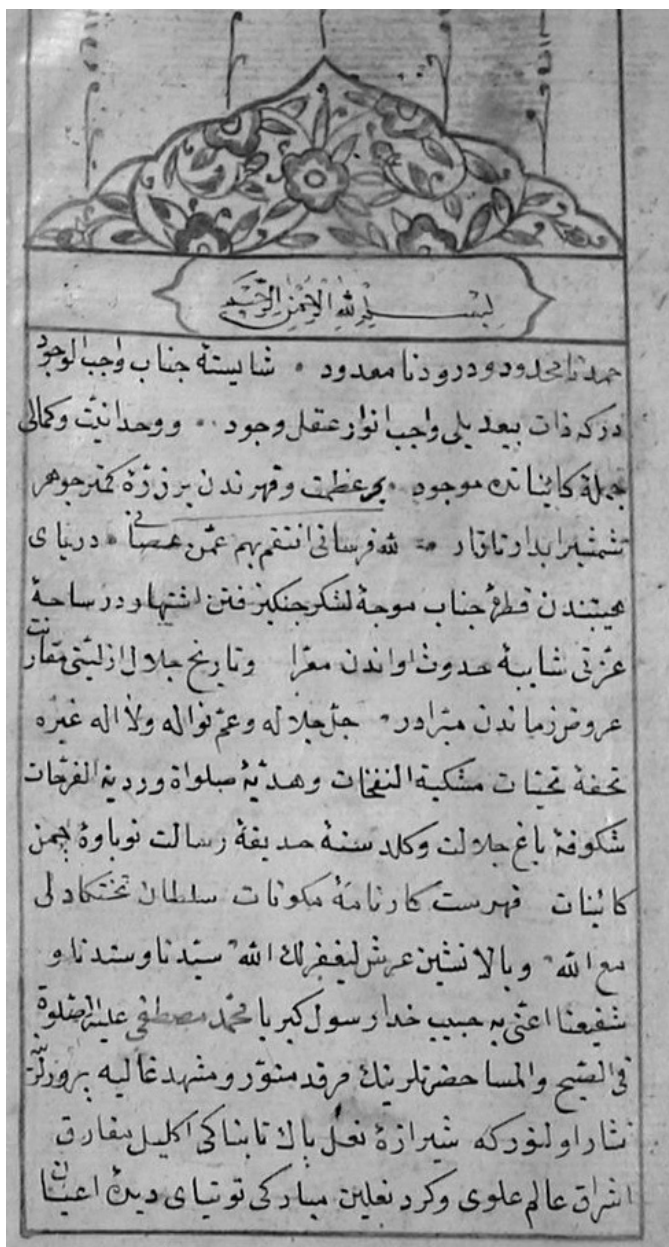 بسم الله الرحمن الرحيم
حمد نامحدود و درود نامعدود شايستهٔ جناب واجب الوجود
دركه ذات بيعديلى واجب انوار عقل وجود ووحدانيت وكمالى
جملهٔ كائناتده موجود بر عظمت وقهرندن بر ذرهٔ كمتر جوهر
شمشير ابدار تاتار لله فرسانى انتقم بهم عمن عصانى درياى
هيبتندن قطرهٔ جناب موجهٔ لشكر جنكيز فتن اشتهار در ساحهٔ
عزتى شايبهٔ حدوث اواندن معرا وتاريخ جلال ازليتى مقارنت
عروض زماندن مبرادر جل جلاله وعم نواله ولا اله غيره
تحفهٔ تحيات مشكية النفحات وهديهٔ صلواة وردية الفرحات
شكوفهٔ باغ جلالت وكلدستهٔ حديقهٔ رسالت نوباوهٔ چمن
كائنات فهرست كارنامهٔ مكونات سلطان تختكاه لى
مع الله وبالانشين عرش ليغفر لك الله سيدنا وسندنا و
شفيعنا اعنى به حبيب خدا رسول كبريا محمد مصطفى عليه الصلوة
فى الصبح والمسا حضرتلرينك مرقد منور ومشهد عاليه پرورلرينه
نثار اولنور كه شيرازهٔ نعل پاك تابناكى اكليل مفارق
اشراق عالم علوى وكرد نعلين مباركى توتياى ديدهٔ اعيان